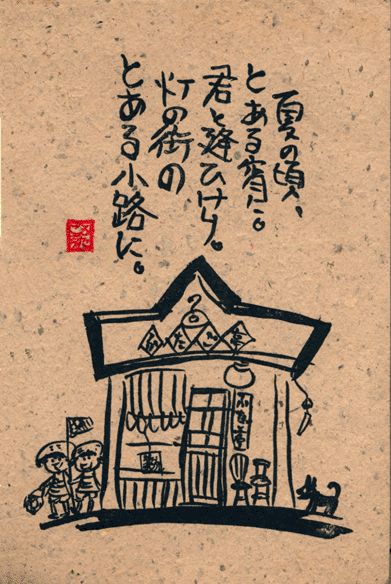 夏の頃、
とある宵に。
君と逢ひけり。
灯の街の
とある小路に。